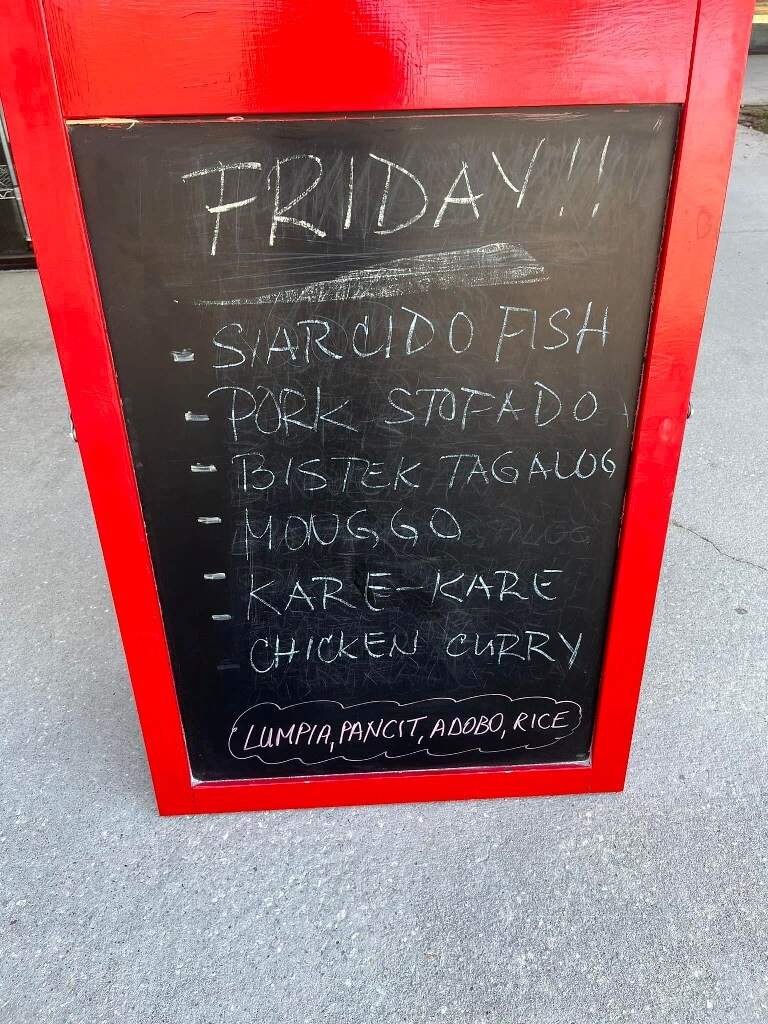 FRIDAY!!
- SARCIDO FISH
- PORK STOFADO
- BISTEK TAGALOG
- MOUGGO
- KARE-KARE
- CHICKEN CURRY
LUMPIA, PANCIT, ADOBO, RICE